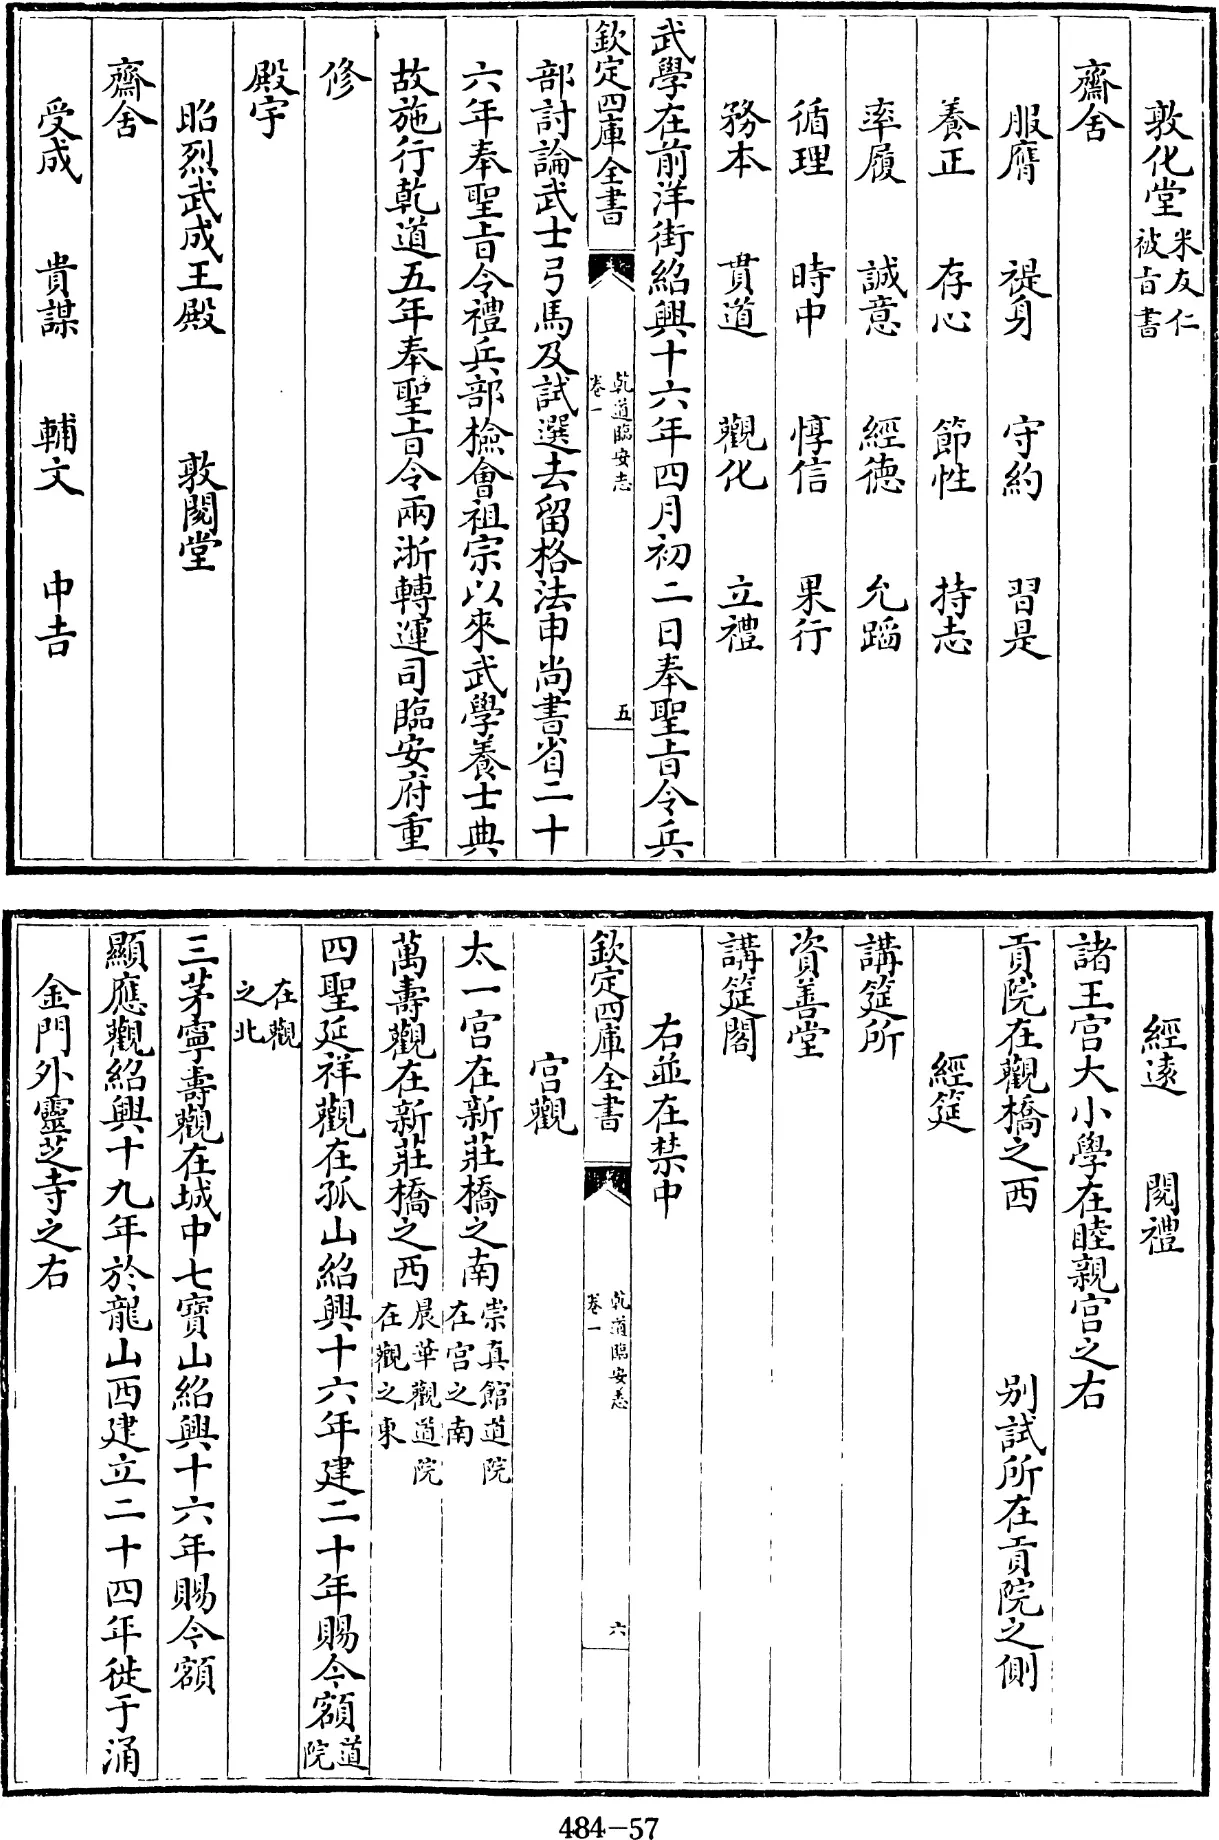 敦化堂米友仁被旨書
齋舍
服膺　禔身　守約　習是
養正　存心　節性　持志
率履　誠意　經德　允蹈
循理　時中　惇信　果行
務本　貫道　觀化　立禮
武學在前洋街紹興十六年四月初二日奉聖旨令兵
欽定四庫全書　乾道臨安志卷一　五
部討論武士弓馬及試選去留格法申尚書省二十
六年奉聖旨令禮兵部檢會祖宗以來武學養士典
故施行乾道五年奉聖旨令兩浙轉運司臨安府重
修
殿宇
昭烈武成王殿　敦閱堂
齋舍
受成　貴謀　輔文　中吉
經遠　閱禮
諸王宮大小學在睦親宮之右
貢院在觀橋之西　別試所在貢院之側
經筵
講筵所
資善堂
講筵閣
右並在禁中
欽定四庫全書　乾道臨安志卷一　六
宮觀
太一宮在新莊橋之南崇真館道院在宮之南
萬壽觀在新莊橋之西晨華觀道院在觀之東
四聖延祥觀在孤山紹興十六年建二十年賜今額道院
在觀之北
三茅寧壽觀在城中七寶山紹興十六年賜今額
顯應觀紹興十九年於龍山西建立二十四年徙于涌
金門外靈芝寺之右
484-57